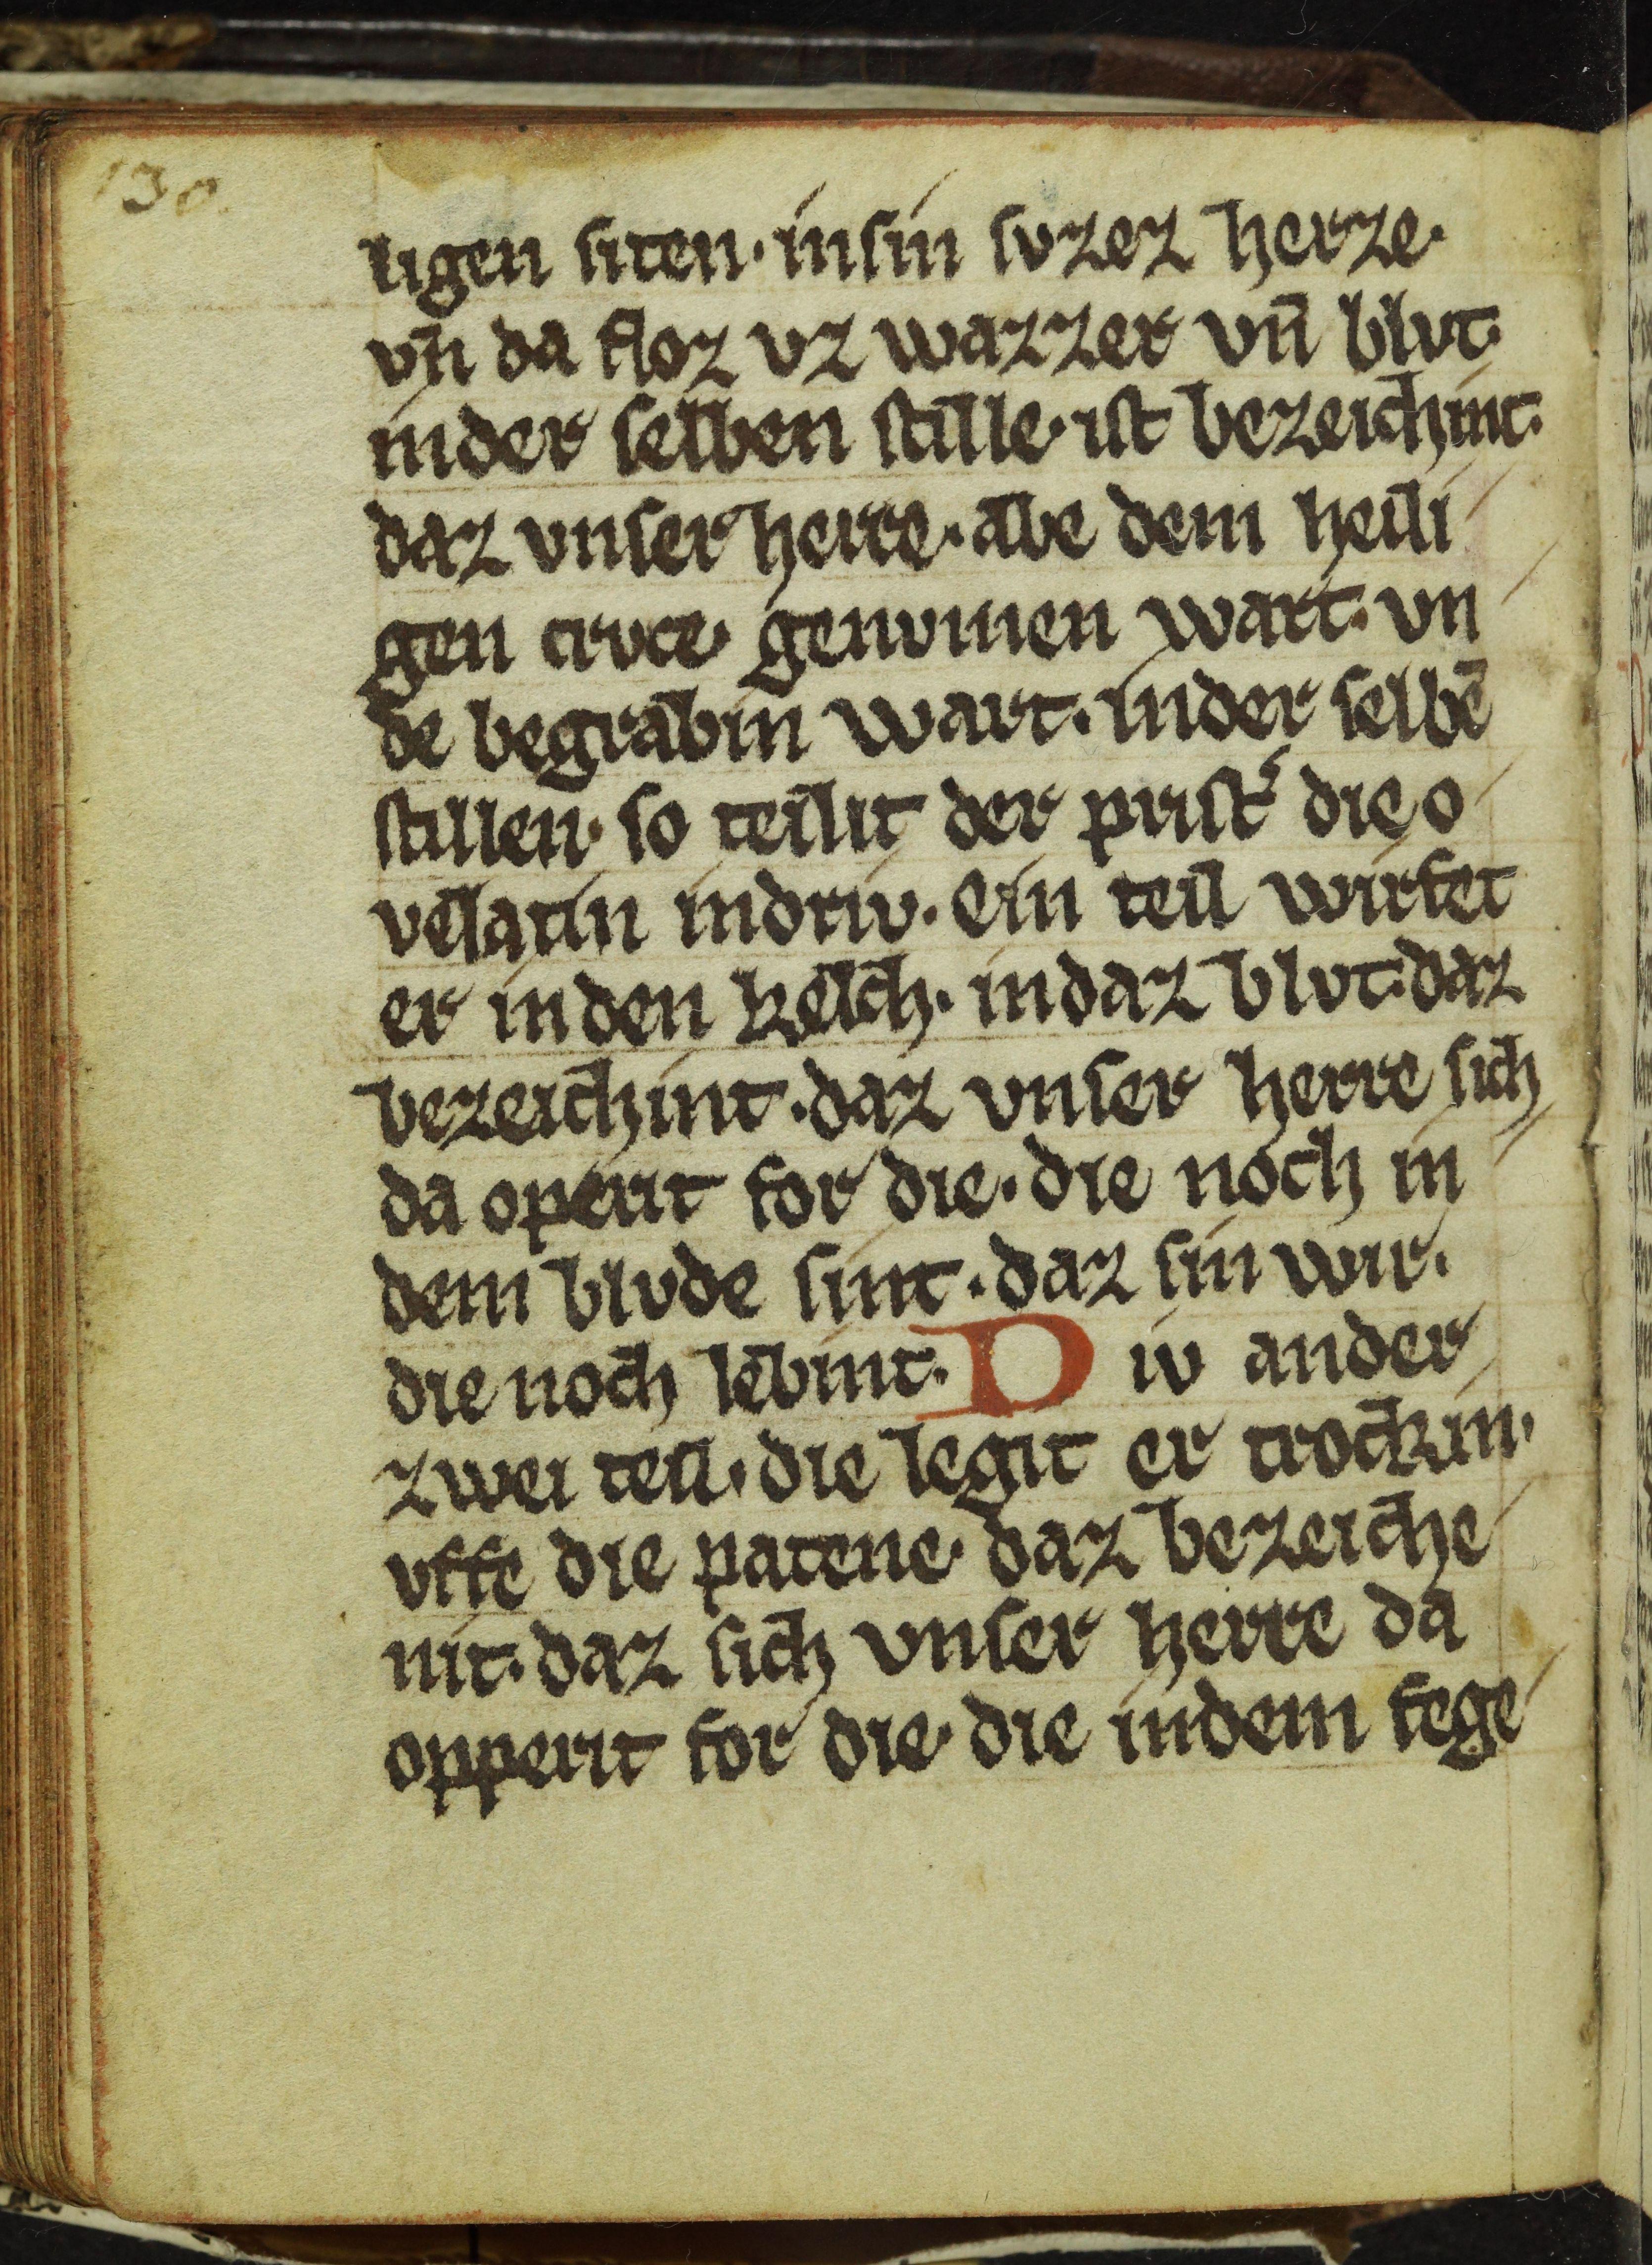 130.
ligen siten. in sin svzez herze.
vn̄ da floz vz wazzer vn̄ blvt.
in der selben stille. ist bezeichint.
daz vnser herre. abe dem heili
gen crvce. genvmen wart. vn
de begrabin wart. in der selbē
stillen. so teilit der pristʼ die o
velatin in driv. Ein teil wirfet
er in den kelch. in daz blvt. daz
bezeichint. daz vnser herre sich
da operit for die. die noch in
dem blvde sint. daz sin wir.
die noch lebint. Div ander
zwei teil. die legit er trockin.
vffe die patene. daz bezeiche
nit. daz sich vnser herre da
opperit for die. die in dem fege